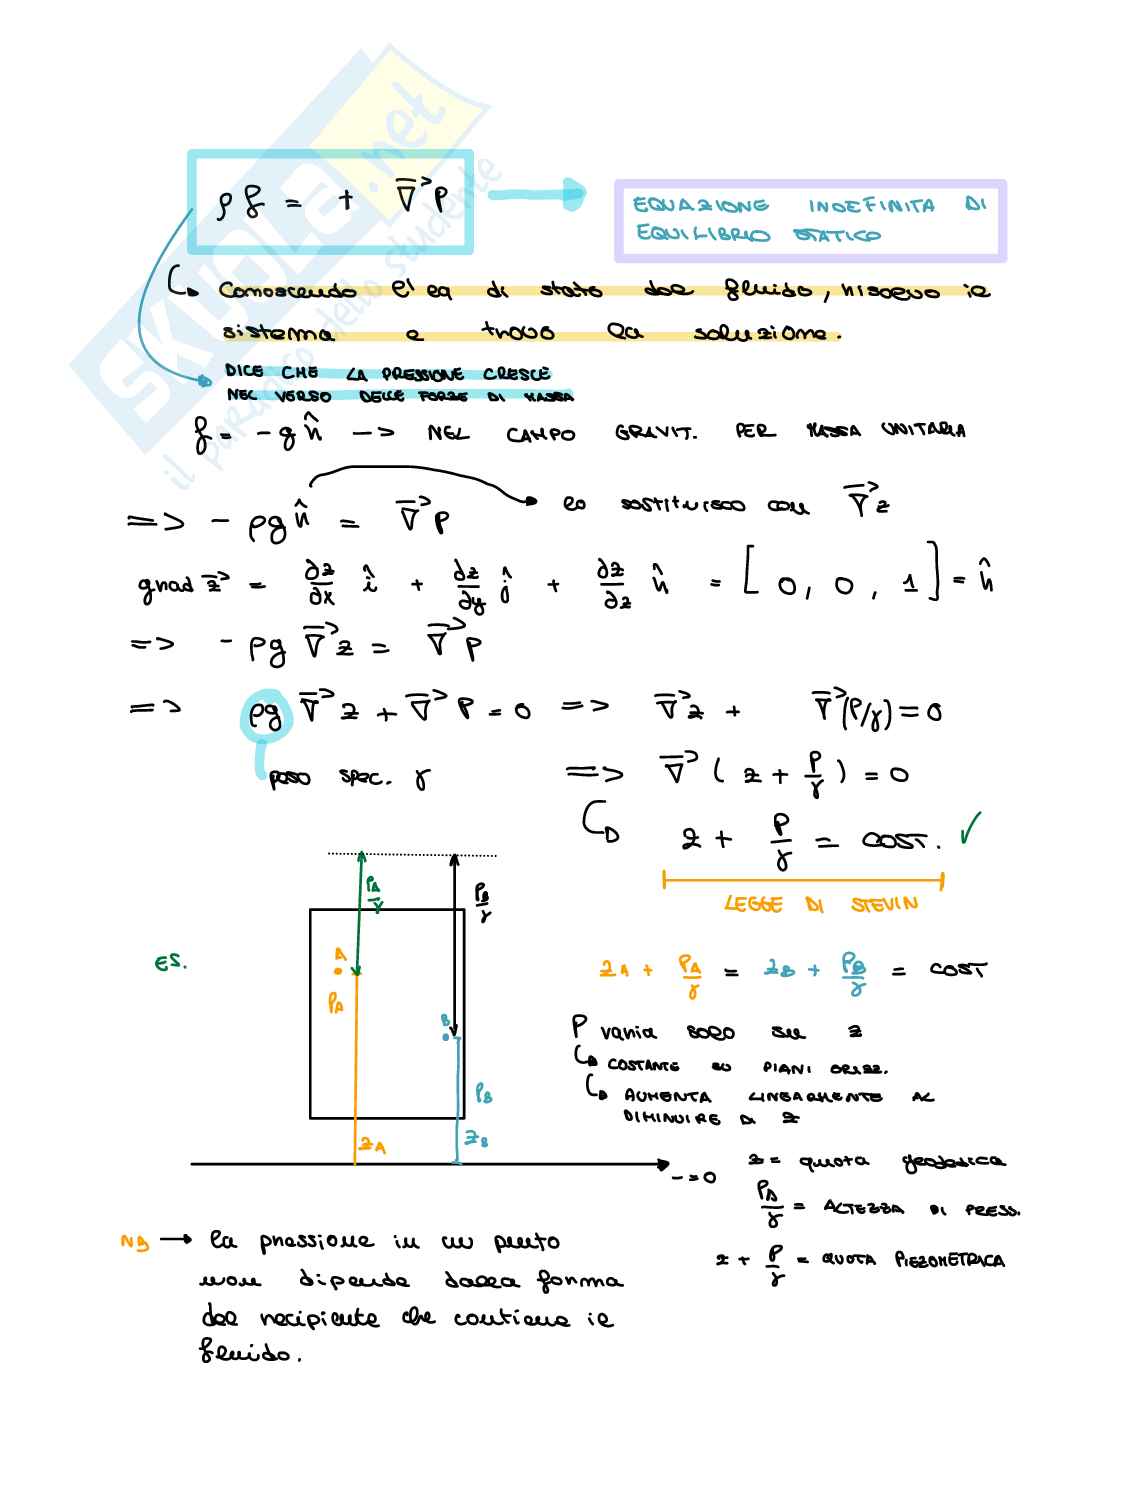 SKUOLA.net
il paradiso dello studente
ρ f = + ∇⃗ P
EQUAZIONE INDEFINITA DI
EQUILIBRIO STATICO
Conoscendo l'eq di stato del fluido, risolvo il
sistema e trovo la soluzione.
DICE CHE LA PRESSIONE CRESCE
NEL VERSO DELLE FORZE DI MASSA
f = - g k̂ --> NEL CAMPO GRAVIT. PER MASSA UNITARIA
=> - ρg k̂ = ∇⃗ P lo sostituisco con ∇⃗ z
grad z⃗ = ∂z/∂x î + ∂z/∂y ĵ + ∂z/∂z k̂ = [ 0, 0, 1 ] = k̂
=> - ρg ∇⃗ z = ∇⃗ P
=> ρg ∇⃗ z + ∇⃗ P = 0 => ∇⃗ z + ∇⃗ (P/γ) = 0
peso spec. γ
=> ∇⃗ ( z + P/γ ) = 0
z + P/γ = COST. ✓
LEGGE DI STEVIN
ES.
PA/γ
PB/γ
A
PA
B
PB
zA
zB
zA + PA/γ = zB + PB/γ = COST
P varia solo su z
COSTANTE SU PIANI ORIZZ.
AUMENTA LINEARMENTE AL
DIMINUIRE DI z
- = 0
z = quota geodesica
PA/γ = ALTEZZA DI PRESS.
z + P/γ = QUOTA PIEZOMETRICA
NB → la pressione in un punto
non dipende dalla forma
del recipiente che contiene il
fluido.